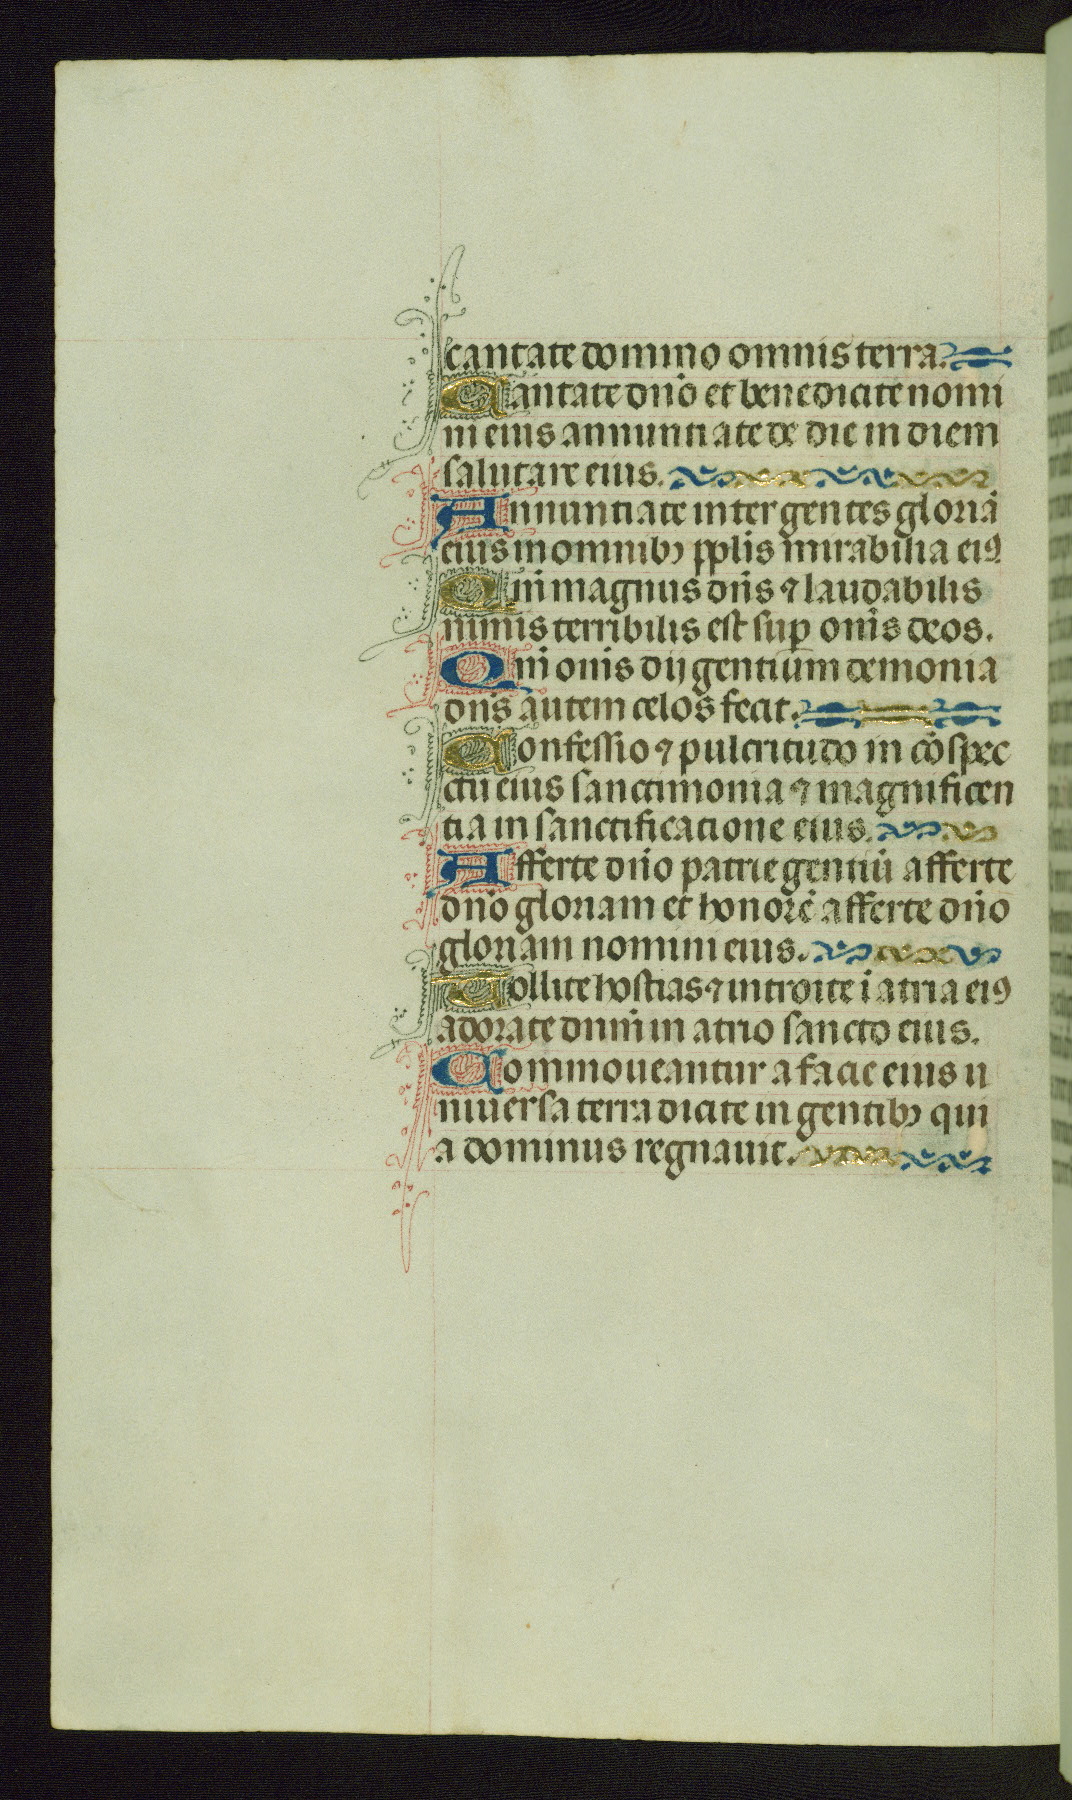 cantate domino omnis terra.
Cantate dño et benedicite nomi
ni eius annunti ate de die in diem
salutare eius.
Annuntiate inter gentes gloriã
eius in omnibꝫ pplis mirabilia eiꝰ
Qm̃ magnus dñs ⁊ laudabilis
nimis terribilis est suꝑ om̃s deos.
Qm̃ om̃s dij gentium demonia
dñs autem celos fecit.
Confessio ⁊ pulcritudo in cõspec
ctu eius sanctimonia ⁊ magnificen
tia in sanctificatione eius.
Afferte dño patrie gentiũ afferte
dño gloriam et honorẽ afferte dño
gloriam nomini eius.
Tollite hostias ⁊ introite ĩ atria eiꝰ
adorate dnm̃ in atrio sancto eius.
Commoueantur a facie eius u
niuersa terra dicite in gentibꝫ qui
a dominus regnauit.